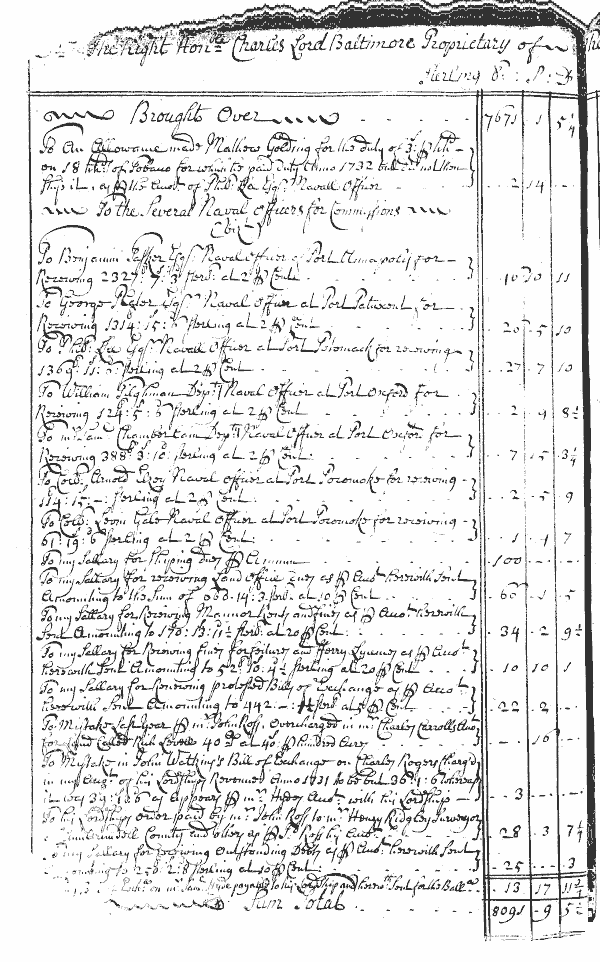 The Right Hon.ble Charles Lord Baltimore Proprietary of
Sterling
Brought Over 7671 1 5¼
To An Allowance made Mathew Golding for the duty of 3: p hhd
on 18 hhds of Tobaco for which he paid duty Anno 1732 but did not then
Ship it, as p the Acct. of Phil: Lee Esqr. Navall Officer 2 14
To the Several Naval Officers for Commissions
Viz.
To Benjamin Tasker Esqr. Naval Officer at Port Annapolis for
Receiving 2327: 7: 3 sterl. at 2 p Cent 10 11
To George Plater Esqr. Naval Officer at Port Patuxent for
Receiving 1314: 15: sterling at 2 p Cent 5 10
To Phil: Lee Esqr. Navall Officer at Port Potomack for receiving
sterling at 2 p Cent 27 7 10
To William Tilghman Depty Naval Officer at Port Oxford for
Receiving 124: 5: sterling at 2 p Cent 2 9 8½
To mr. Sam: Chamberlain Depty Naval Officer at Port Oxford for
Receiving 388: 3: 10: sterling at 2 p Cent 7 15 3¼
To Colo. Arnold Elzey Naval Officer at Port Pocomoke for receiving
114: 15: - sterling at 2 p Cent 2 5 9
To Colo: Levin Gale Naval Officer at Port Pocomoke for receiving
61: 19: 6 sterling at 2 p Cent 1 4 7
To my Sallary for Shiping dues p Annum 100
To my Sallary for receiving Land Office dues as p Acct. herewith Sent
Amounting to the Sum of 14: 3 sterl. at 10 p Cent 1 5
To my Sallary for Receiving Mannor Rents and fines as p Acct. herewith
Sent Amounting to 170: 13: 11½ sterl. at 20 p Cent 34 2 9½
To my Sallary for Receiving fines forfeitures and Ferry Lycences as p Acct.
herewith Sent Amounting to 52: 10: 4½ sterling at 20 p Cent 10 10 1
To my Sallary for Receiving protested Bills of Exchange as p Acct.
herewith Sent Amounting to 442: sterl at 5 p Cent 22 2
To Mistake last year p mr. John Ross. Overcharged in mr. Charles Carrolls Acct
for Land Called Rich Levels 40 at 40 p hundred Acres 16
To Mistake in John Watkins's Bill of Exchange on Charles Rogers Charg'd
in my Acct. of his Lordships Revenues Anno 1731 to be but 36: 4: 6 whereas
it was 39: 4: 6 as appears p mr. Hydes Acct. with his Lordship 3
To his Lordships Order paid by mr. John Ross to mr. Henry Ridgley Surveyor
Ann Arundell County and others as p Jo: Ross his Acct. 28 3 7¼
To my Sallary for receiving Outstanding Debts as p Acct. herewith Sent
Amounting to 250: 2: 8 sterling at 10 p Cent 25 3
on mr. Hyde payable to his Lordship and herewith Sent for the Ballce. 13 17 11¾
Sum Total 8091 9 5½